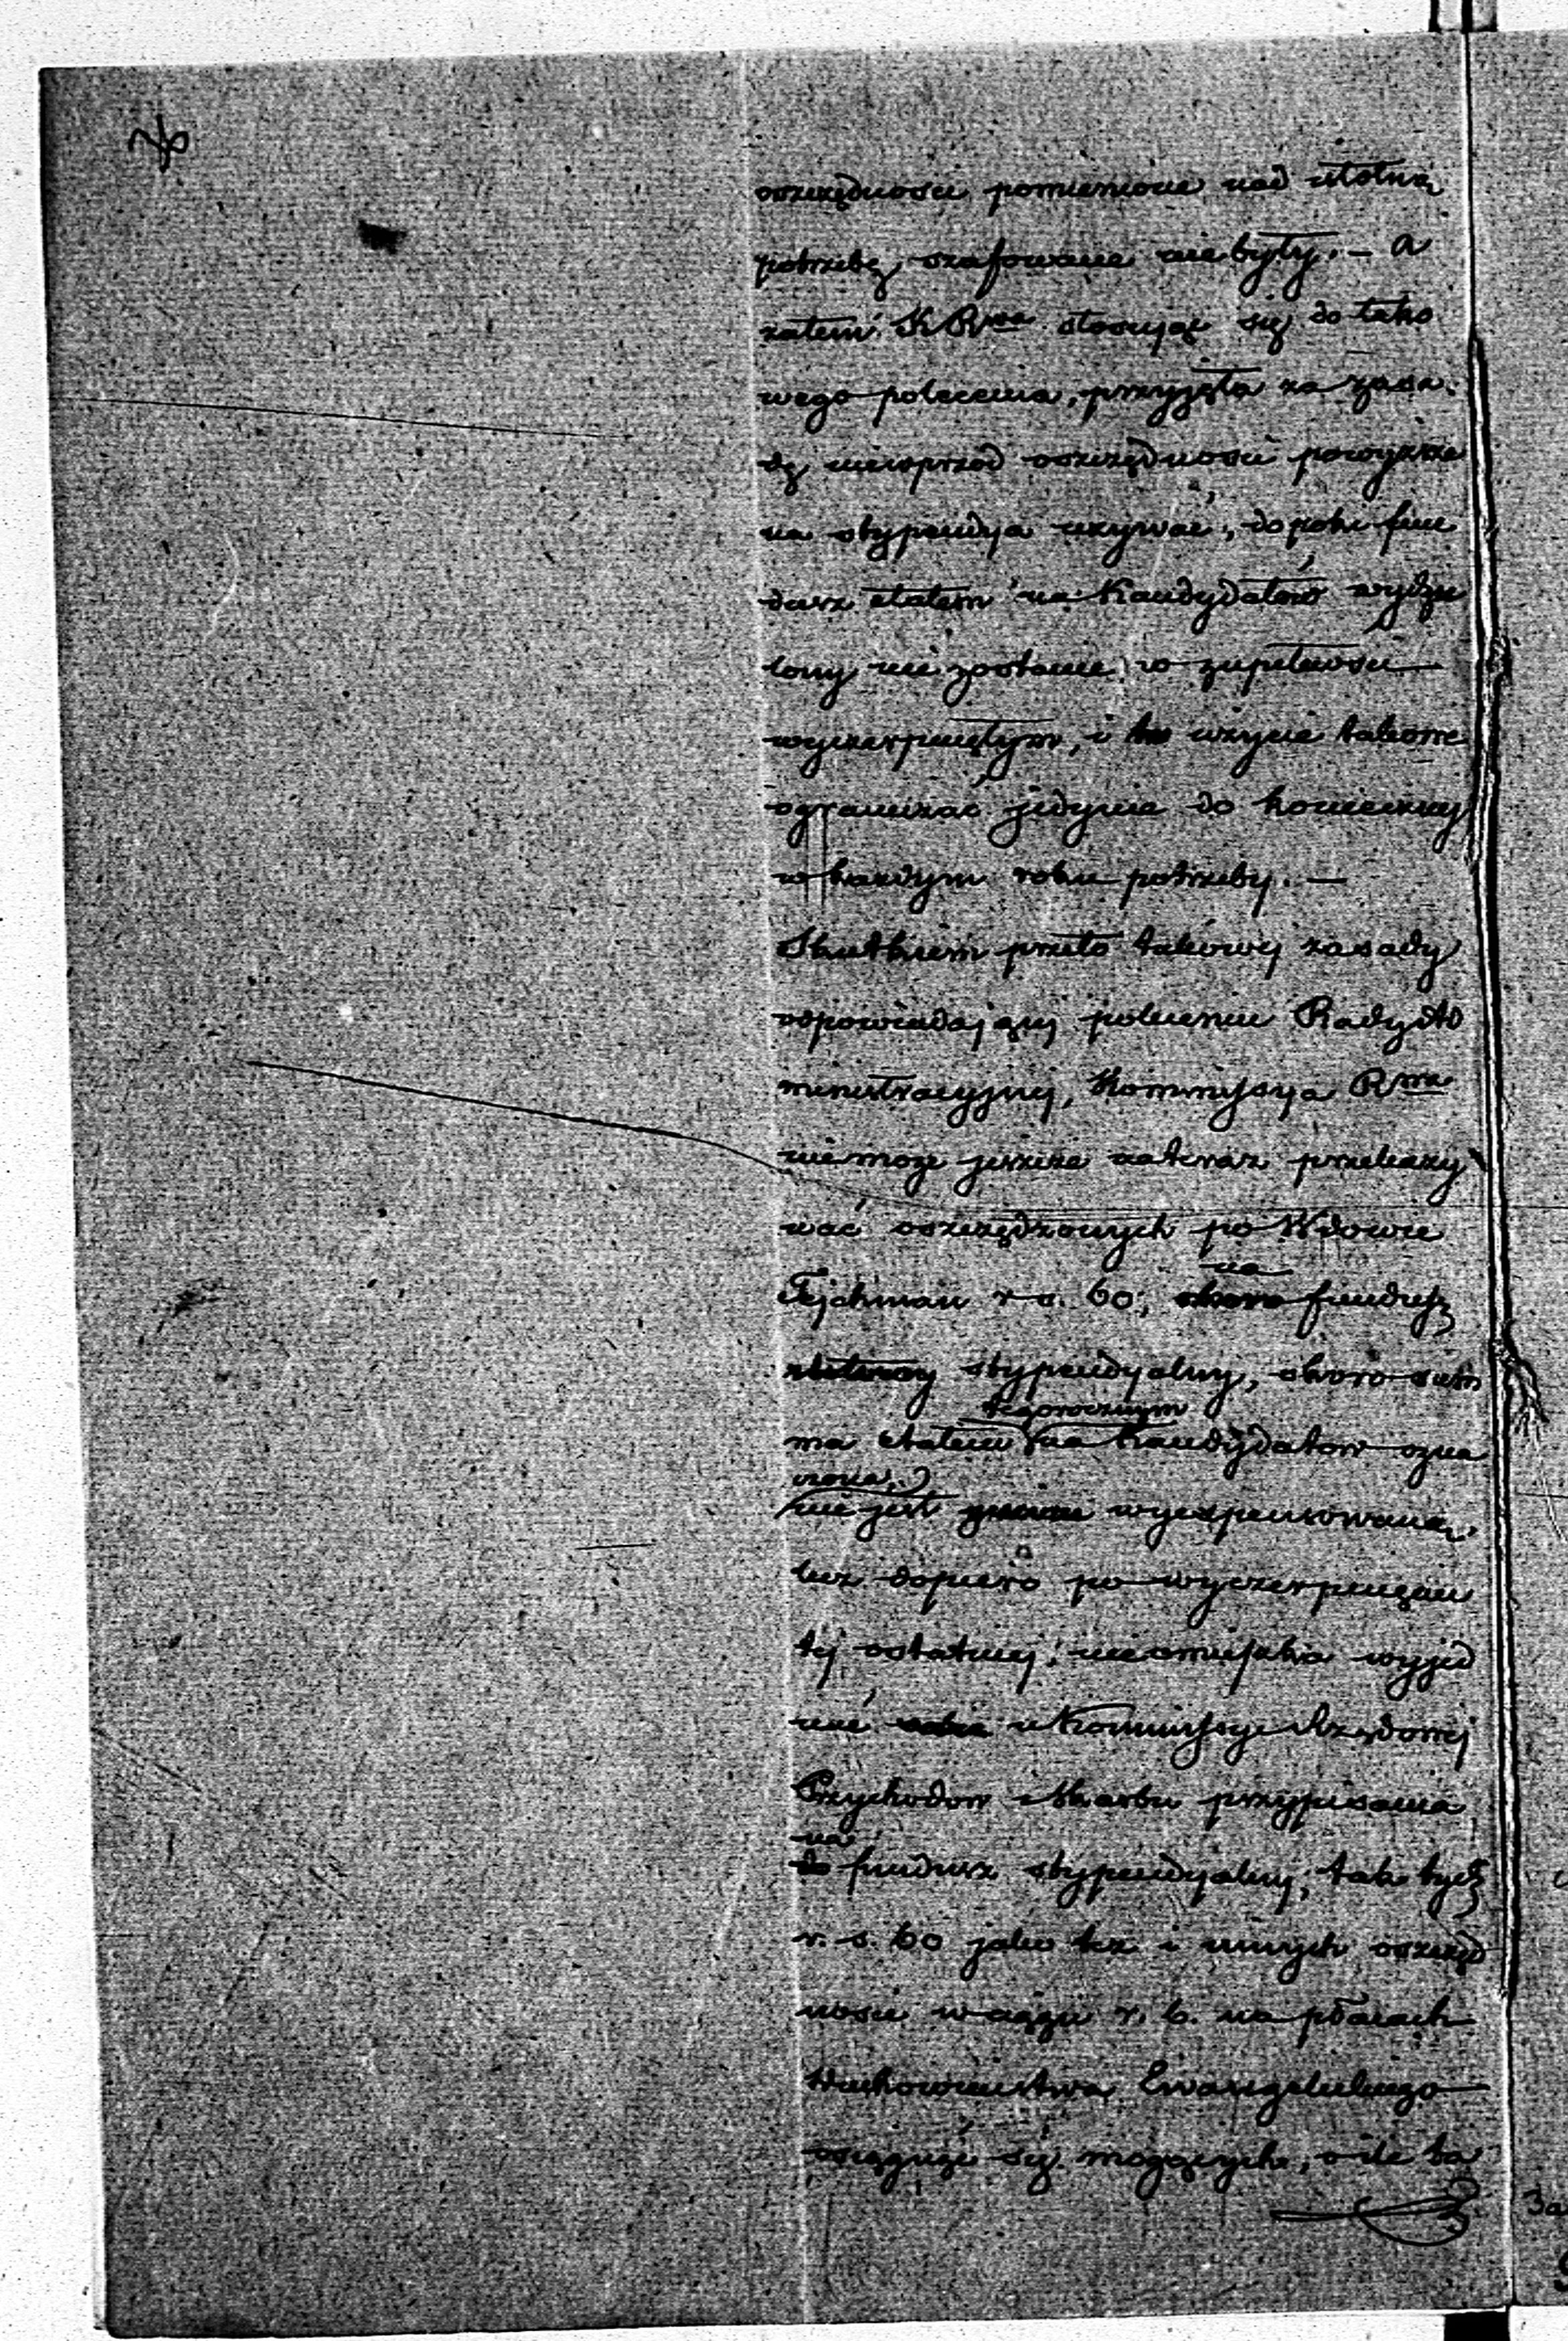 oszczędności pomienione nad istotną
potrzebę, szafowane nie były. – a
zatem K R<sup>wa</sup> stosując się do tako
wego polecenia, przyjęła za zasa-
dę niewprzód oszczędności powyższe
na stypendya używać, dopóki fun
dusz etatem na Kandydatów wydzie
lony nie zostanie w zupełności
wyczerpniętym, i użycie takowe
ograniczać jedynie do konieczney
w każdym roku potrzeby. –
Skutkiem przeto takowej zasady
odpowiadającej poleceniu Rady Ad
ministracyjnej, Kommissya R<sup>wa</sup>
nie może jeszcze na teraz przekazy
wać oszczędzonych po Wdowie
Tejchman r s. 60, na fundusz
stypendyalny, skoro sum
ma etatem tegorocznym na Kandydatów ozna
czona,
nie jest wyexpensowaną,
lecz dopiero po wyczerpnięciu
tej ostatniej, nie omieszka wyjed
nać u Kommissyi Rządowej
Przychodów i Skarbu przypisania
na
do fundusz stypendyalny, tak tych
r. s. 60 jako też i innych oszczęd
ności w ciągu r. b. na płacach
Duchowieństwa Ewangelickiego
osiągnąć się mogących, o ile ta